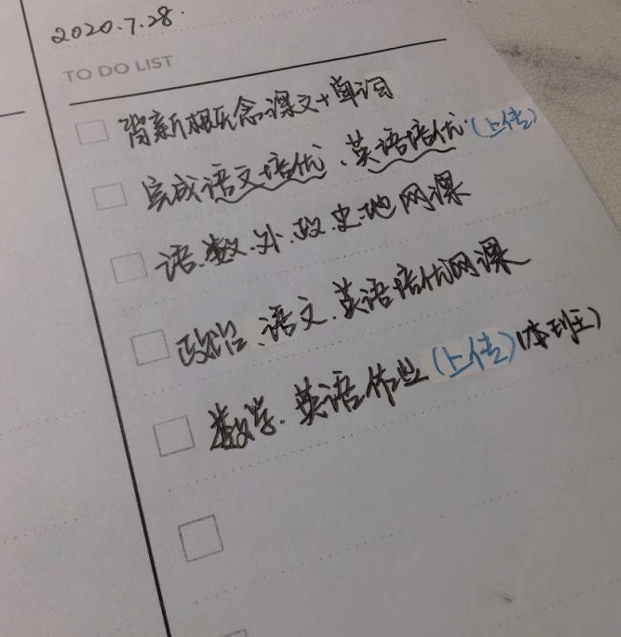 2020.7.28.
TO DO LIST
背新概念课文+单词
完成语文培优、英语培优(上传)
语.数.外.政.史.地网课
政治、语文、英语培优网课
数学、英语作业(上传)(本班)